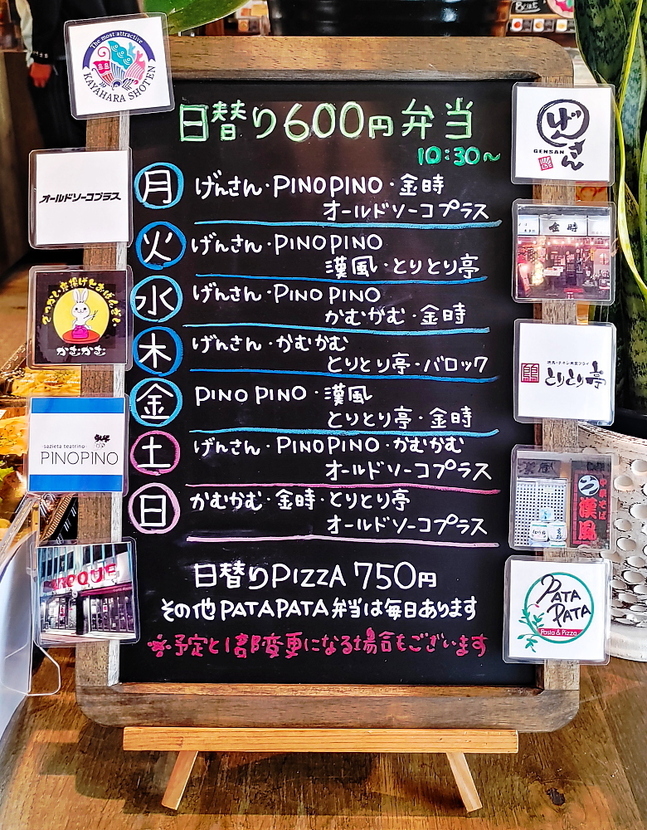 The most attractive
KAYAHARA SHOTEN
日替り600円弁当
10:30~
月 げんさん・PINOPINO・金時
オールドソーコプラス
火 げんさん・PINOPINO
漢風・とりとり亭
水 げんさん・PINOPINO
かむかむ・金時
木 げんさん・かむかむ
とりとり亭・バロック
金 PINOPINO・漢風
とりとり亭・金時
土 げんさん・PINOPINO・かむかむ
オールドソーコプラス
日 かむかむ・金時・とりとり亭
オールドソーコプラス
日替りPIZZA 750円
その他PATAPATA弁当は毎日あります
※予定と1部変更になる場合もございます
オールドソーコプラス
かむかむ
PINOPINO
ROQUE
げんさん
GENSAN
金時
とりとり亭
漢風
中華そば
漢風
PATA
PATA
Pasta & Pizza